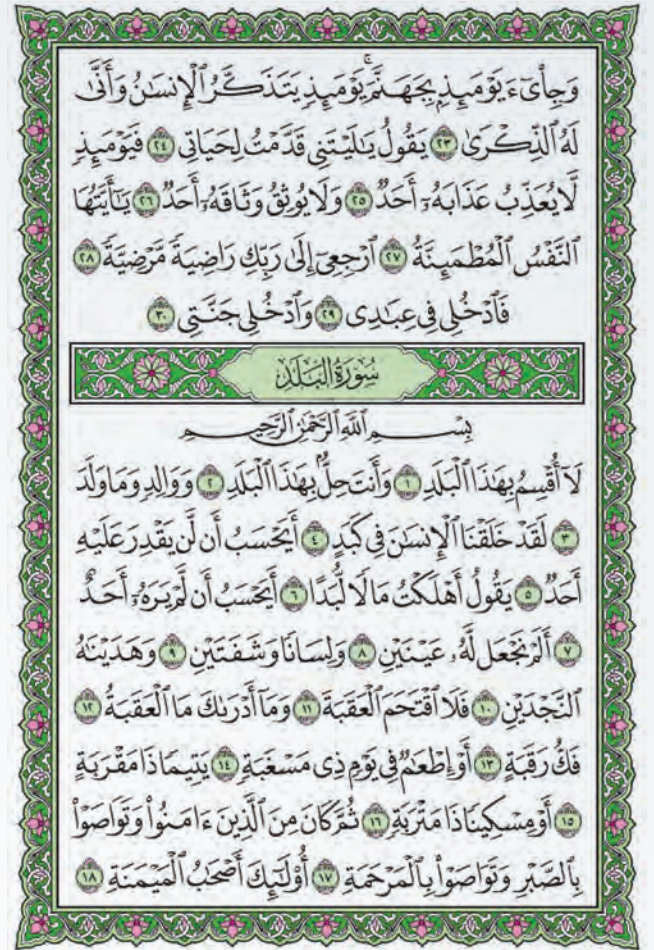 وَجِا۟ىٓءَ يَوْمَئِذٍۭ بِجَهَنَّمَ ۚ يَوْمَئِذٍ يَتَذَكَّرُ ٱلْإِنسَـٰنُ وَأَنَّىٰ
لَهُ ٱلذِّكْرَىٰ ٢٣ يَقُولُ يَـٰلَيْتَنِى قَدَّمْتُ لِحَيَاتِى ٢٤ فَيَوْمَئِذٍ
لَّا يُعَذِّبُ عَذَابَهُۥٓ أَحَدٌ ٢٥ وَلَا يُوثِقُ وَثَاقَهُۥٓ أَحَدٌ ٢٦ يَـٰٓأَيَّتُهَا
ٱلنَّفْسُ ٱلْمُطْمَئِنَّةُ ٢٧ ٱرْجِعِىٓ إِلَىٰ رَبِّكِ رَاضِيَةً مَّرْضِيَّةً ٢٨
فَٱدْخُلِى فِى عِبَـٰدِى ٢٩ وَٱدْخُلِى جَنَّتِى ٣٠
سُورَةُ الْبَلَدِ
بِسْمِ ٱللَّهِ ٱلرَّحْمَـٰنِ ٱلرَّحِيمِ
لَآ أُقْسِمُ بِهَـٰذَا ٱلْبَلَدِ ١ وَأَنتَ حِلٌّۢ بِهَـٰذَا ٱلْبَلَدِ ٢ وَوَالِدٍ وَمَا وَلَدَ
٣ لَقَدْ خَلَقْنَا ٱلْإِنسَـٰنَ فِى كَبَدٍ ٤ أَيَحْسَبُ أَن لَّن يَقْدِرَ عَلَيْهِ
أَحَدٌ ٥ يَقُولُ أَهْلَكْتُ مَالًا لُّبَدًا ٦ أَيَحْسَبُ أَن لَّمْ يَرَهُۥٓ أَحَدٌ
٧ أَلَمْ نَجْعَل لَّهُۥ عَيْنَيْنِ ٨ وَلِسَانًا وَشَفَتَيْنِ ٩ وَهَدَيْنَـٰهُ
ٱلنَّجْدَيْنِ ١٠ فَلَا ٱقْتَحَمَ ٱلْعَقَبَةَ ١١ وَمَآ أَدْرَىٰكَ مَا ٱلْعَقَبَةُ ١٢
فَكُّ رَقَبَةٍ ١٣ أَوْ إِطْعَـٰمٌ فِى يَوْمٍ ذِى مَسْغَبَةٍ ١٤ يَتِيمًا ذَا مَقْرَبَةٍ
١٥ أَوْ مِسْكِينًا ذَا مَتْرَبَةٍ ١٦ ثُمَّ كَانَ مِنَ ٱلَّذِينَ ءَامَنُوا۟ وَتَوَاصَوْا۟
بِٱلصَّبْرِ وَتَوَاصَوْا۟ بِٱلْمَرْحَمَةِ ١٧ أُو۟لَـٰٓئِكَ أَصْحَـٰبُ ٱلْمَيْمَنَةِ ١٨